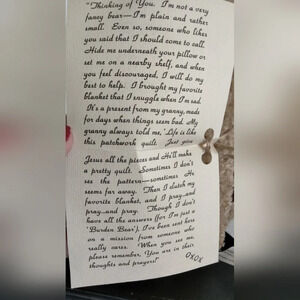 "Thinking of You. I'm not a very
fancy bear—I'm plain and rather
small. Even so, someone who likes
you said that I should come to call.
Hide me underneath your pillow or
set me on a nearby shelf, and when
you feel discouraged, I will do my
best to help. I brought my favorite
blanket that I snuggle when I'm sad.
It's a present from my granny, made
for days when things seem bad. My
granny always told me, 'Life is like
this patchwork quilt. Just give
Jesus all the pieces and He'll make
a pretty quilt. Sometimes I don't
see the pattern—sometimes He
seems far away. Then I clutch my
favorite blanket, and I pray—and
pray—and pray. Though I don't
have all the answers (for I'm just a
'Burden Bear'), I've been sent here
on a mission from someone who
really cares. When you see me,
please remember, You are in their
thoughts and prayers!"
OXOX